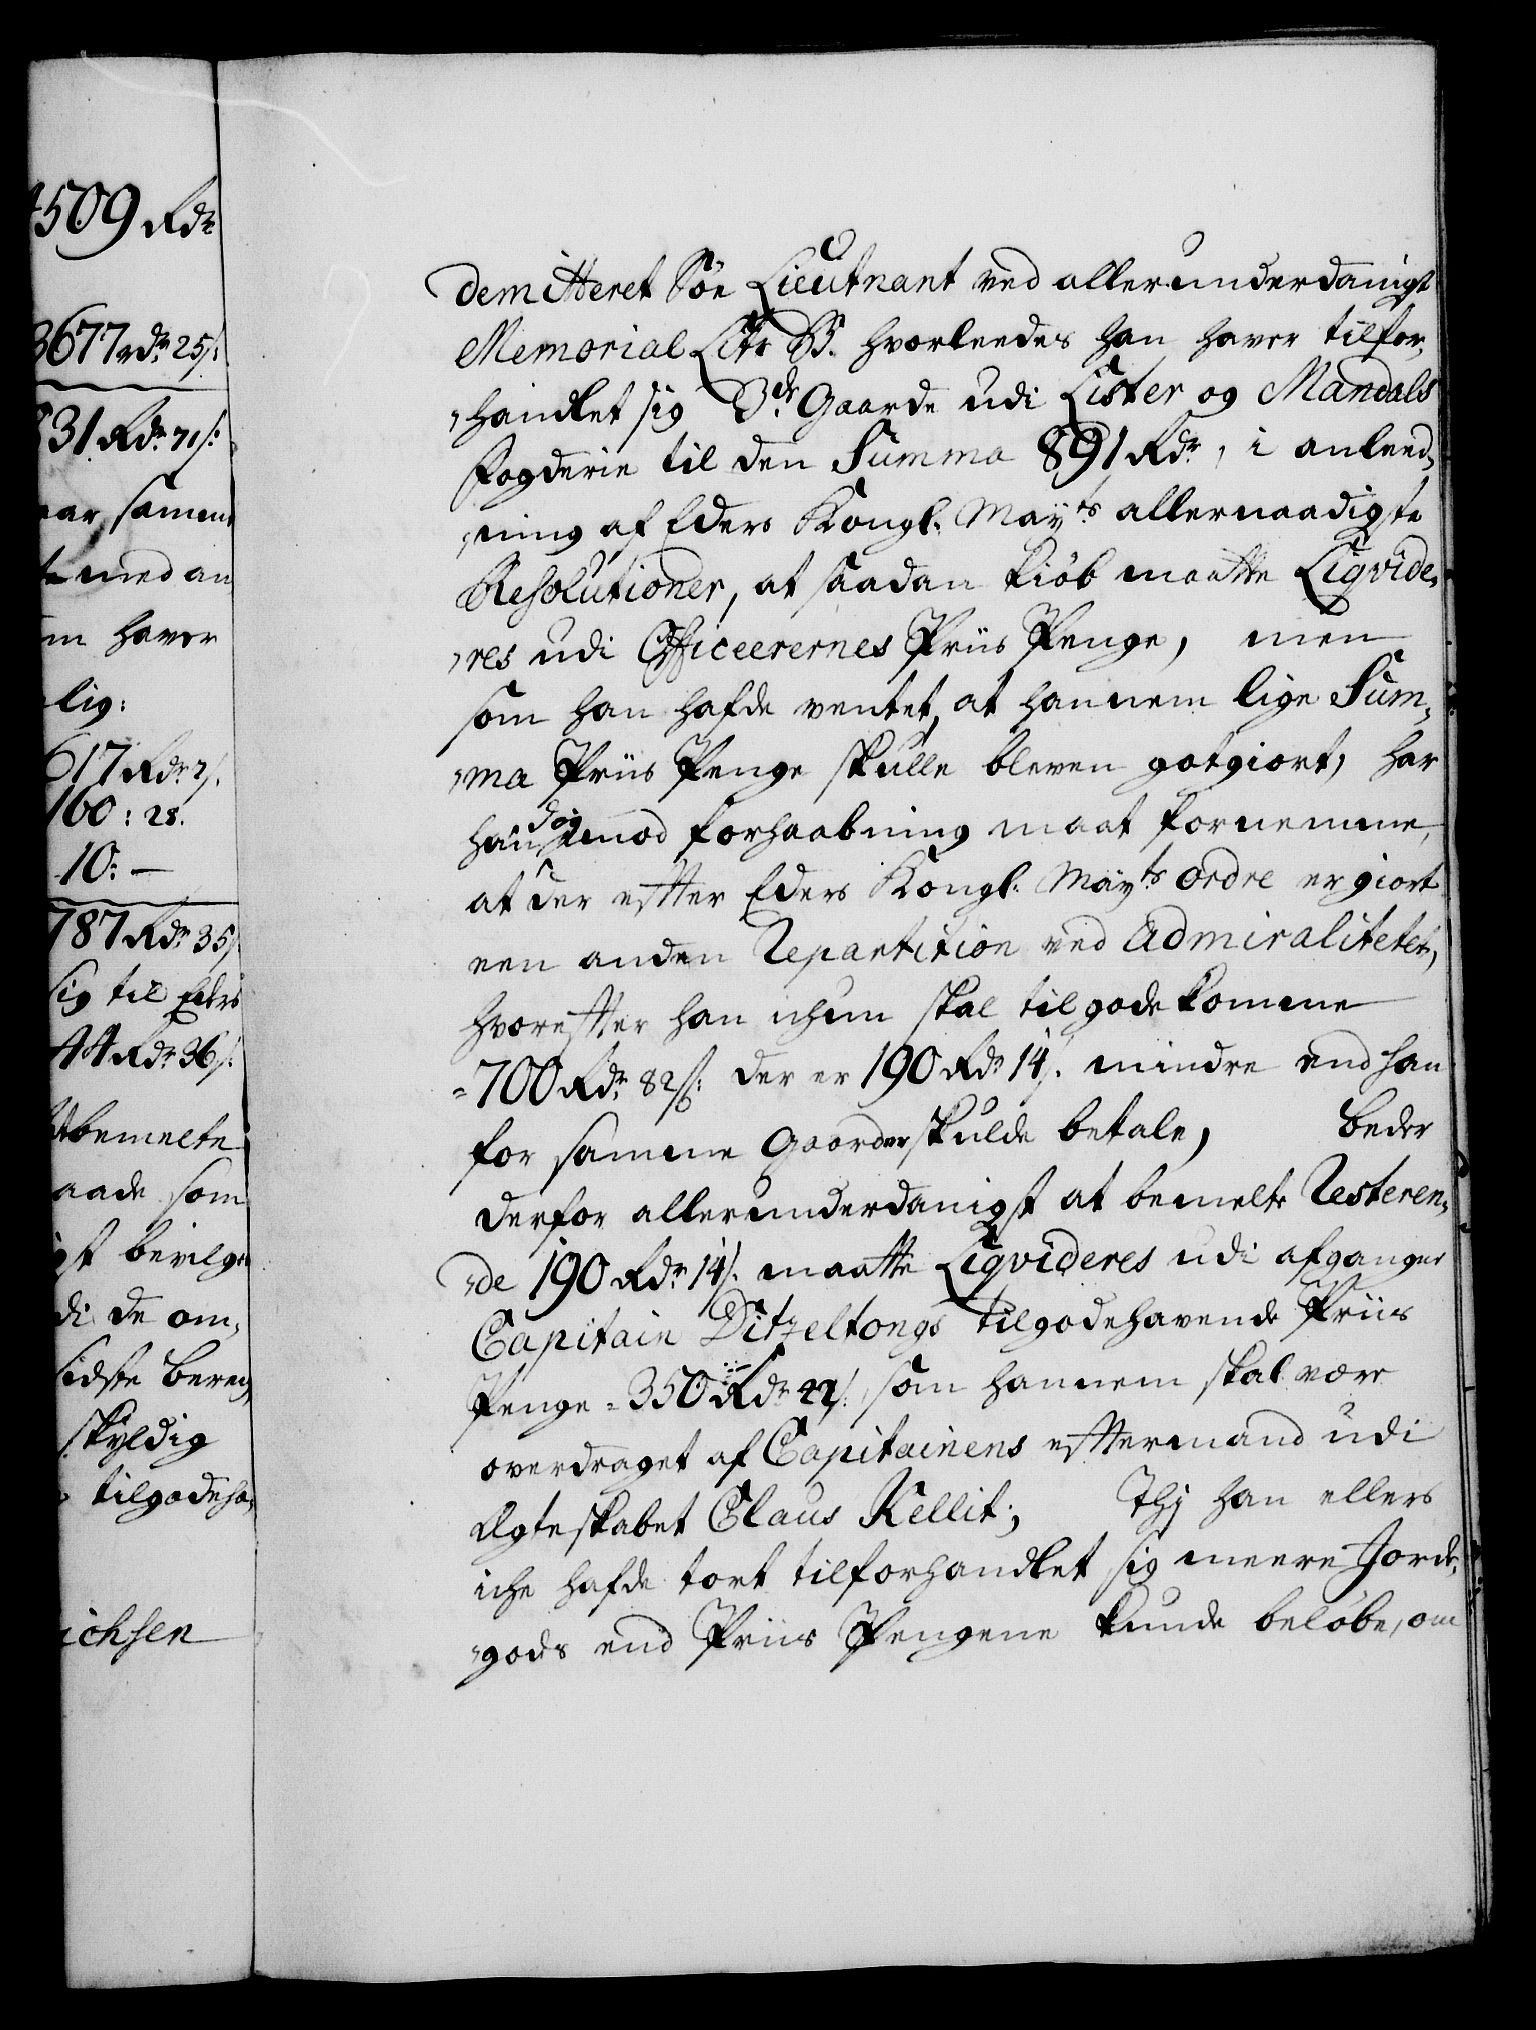 4509 Rdr
3677 rdr 25 s:
831 Rdr 71 s:
aar, samme
te med an
m haver
lig:
617 Rdr 7 s.
160: 28.
10: —
787 Rdr 35 s
sig til Eders
44 Rdr 36 s.
bemelte
aade som
gst bevilge
di de om,
sidste Bereg,
skyldig
tilgodeha,
ichsen
demitteret Söe Lieutnant ved allerunderdanigst
Memorial Litr B. hvorleedes han haver tilfor,
,handlet sig 3de Gaarde udi Lister og Mandals
Fogderie til den Summa 891 Rdr, i anleed,
,ning af Eders Kongl. Mayts allernaadigste
Resolutioner, at saadan kiöb maatte Liqvide,
,res udi Officeerernes Priis Penge, men
som han hafde ventet, at hannem lige Sum,
,ma Priis Penge skulle bleven gotgiort, har
han dog imod forhaabning maat fornemme,
at der efter Eders Kongl. Mayts ordre er giort
een anden Repartition ved Admiralitetet,
hvorefter han ichun skal tilgodekomme
=700 Rdr 82 s: der er 190 Rdr 14 s. mindre end han
for samme Gaarder skulde betale, beder
derfor allerunderdanigst at bemelte Resteren,
,de 190 Rdr 14 s. maatte Liqvideres udi afgangne
Capitain Ditzeltongs tilgodehavende Priis
Penge = 350 Rdr 42 s., som hannem skal være
overdraget af Capitainens eftermand udi
Ægteskabet Claus Kellit; Thj han ellers
iche hafde tort tilforhandlet sig meere Jorde,
,gods end Priis Pengene kunde belöbe, om